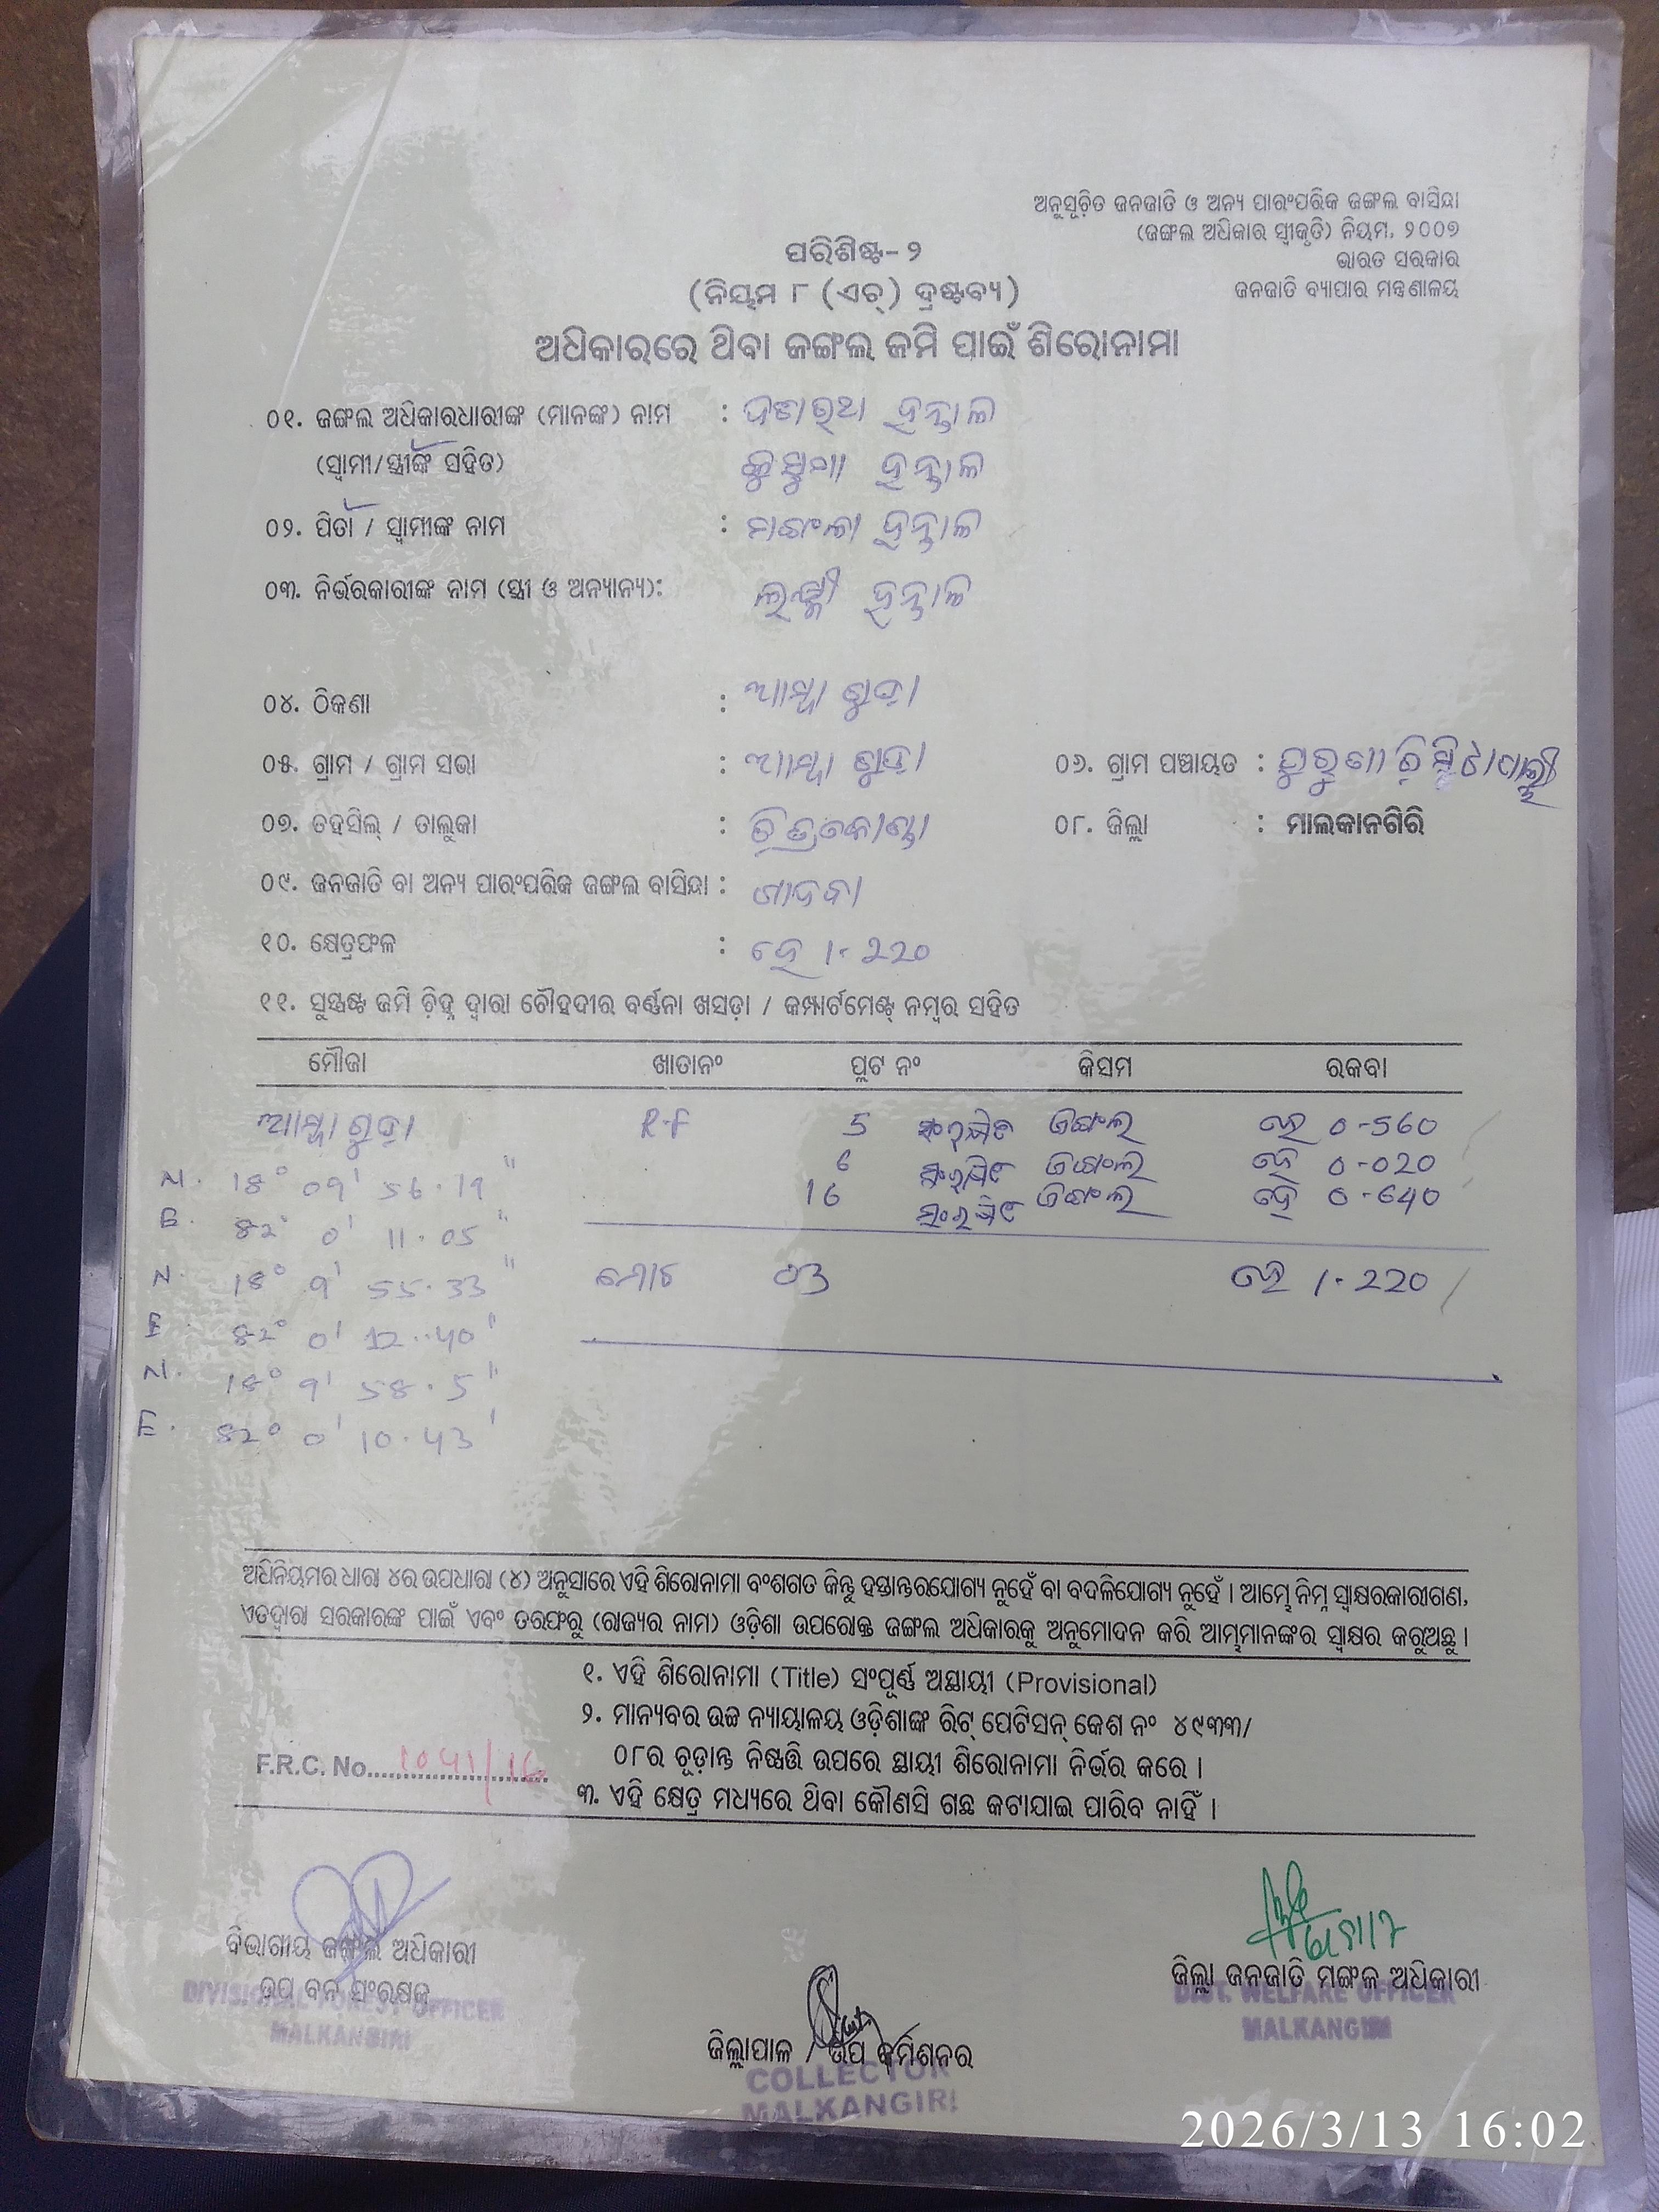 ଅନୁସୂଚିତ ଜନଜାତି ଓ ଅନ୍ୟ ପାରଂପରିକ ଜଙ୍ଗଲ ବାସିନ୍ଦା
(ଜଙ୍ଗଲ ଅଧିକାର ସ୍ୱୀକୃତି) ନିୟମ, ୨୦୦୭
ଭାରତ ସରକାର
ଜନଜାତି ବ୍ୟାପାର ମନ୍ତ୍ରଣାଳୟ
ପରିଶିଷ୍ଟ-୨
(ନିୟମ ୮ (ଏଚ୍) ଦ୍ରଷ୍ଟବ୍ୟ)
ଅଧିକାରରେ ଥିବା ଜଙ୍ଗଲ ଜମି ପାଇଁ ଶିରୋନାମା
୦୧. ଜଙ୍ଗଲ ଅଧିକାରଧାରୀଙ୍କ (ମାନଙ୍କ) ନାମ : ଦଶରଥ ହନ୍ତାଳ
(ସ୍ୱାମୀ/ସ୍ତ୍ରୀଙ୍କ ସହିତ) ହନ୍ତାଳ
୦୨. ପିତା / ସ୍ୱାମୀଙ୍କ ନାମ : ହନ୍ତାଳ
୦୩. ନିର୍ଭରକାରୀଙ୍କ ନାମ (ସ୍ତ୍ରୀ ଓ ଅନ୍ୟାନ୍ୟ): ଲକ୍ଷ୍ମୀ ହନ୍ତାଳ
୦୪. ଠିକଣା : ଆମ୍ବାଗୁଡ଼ା
୦୫. ଗ୍ରାମ / ଗ୍ରାମ ସଭା : ଆମ୍ବାଗୁଡ଼ା ୦୬. ଗ୍ରାମ ପଞ୍ଚାୟତ :
୦୭. ତହସିଲ୍ / ତାଲୁକା : ଚିତ୍ରକୋଣ୍ଡା ୦୮. ଜିଲ୍ଲା : ମାଲକାନଗିରି
୦୯. ଜନଜାତି ବା ଅନ୍ୟ ପାରଂପରିକ ଜଙ୍ଗଲ ବାସିନ୍ଦା : ଗାଦବା
୧୦. କ୍ଷେତ୍ରଫଳ : ହେ 1.220
୧୧. ସୁସ୍ପଷ୍ଟ ଜମି ଚିହ୍ନ ଦ୍ୱାରା ଚୌହଦୀର ବର୍ଣ୍ଣନା ଖସଡ଼ା / କମ୍ପାର୍ଟମେଣ୍ଟ୍ ନମ୍ବର ସହିତ
ମୌଜା ଖାତାନଂ ପ୍ଲଟ ନଂ କିସମ ରକବା
ଆମ୍ବାଗୁଡ଼ା R.F 5 ସଂରକ୍ଷିତ ଜଙ୍ଗଲ ହେ 0-560
6 ସଂରକ୍ଷିତ ଜଙ୍ଗଲ ହେ 0-020
N. 18° 09' 56.19" 16 ସଂରକ୍ଷିତ ଜଙ୍ଗଲ ହେ 0-640
E. 82° 0' 11.05"
N. 18° 9' 55.33" ମୋଟ 03 ହେ 1.220
E. 82° 0' 12.40"
N. 18° 9' 58.5"
E. 82° 0' 10.43'
ଅଧିନିୟମର ଧାରା ୪ର ଉପଧାରା (୪) ଅନୁସାରେ ଏହି ଶିରୋନାମା ବଂଶଗତ କିନ୍ତୁ ହସ୍ତାନ୍ତରଯୋଗ୍ୟ ନୁହେଁ ବା ବଦଳିଯୋଗ୍ୟ ନୁହେଁ । ଆମ୍ଭେ ନିମ୍ନ ସ୍ୱାକ୍ଷରକାରୀଗଣ,
ଏତଦ୍ୱାରା ସରକାରଙ୍କ ପାଇଁ ଏବଂ ତରଫରୁ (ରାଜ୍ୟର ନାମ) ଓଡ଼ିଶା ଉପରୋକ୍ତ ଜଙ୍ଗଲ ଅଧିକାରକୁ ଅନୁମୋଦନ କରି ଆମ୍ଭମାନଙ୍କର ସ୍ୱାକ୍ଷର କରୁଅଛୁ ।
୧. ଏହି ଶିରୋନାମା (Title) ସଂପୂର୍ଣ୍ଣ ଅସ୍ଥାୟୀ (Provisional)
୨. ମାନ୍ୟବର ଉଚ୍ଚ ନ୍ୟାୟାଳୟ ଓଡ଼ିଶାଙ୍କ ରିଟ୍ ପେଟିସନ୍ କେଶ ନଂ ୪୯୩୩/
୦୮ର ଚୂଡ଼ାନ୍ତ ନିଷ୍ପତ୍ତି ଉପରେ ସ୍ଥାୟୀ ଶିରୋନାମା ନିର୍ଭର କରେ ।
F.R.C. No.
୩. ଏହି କ୍ଷେତ୍ର ମଧ୍ୟରେ ଥିବା କୌଣସି ଗଛ କଟାଯାଇ ପାରିବ ନାହିଁ ।
ବିଭାଗୀୟ ଜଙ୍ଗଲ ଅଧିକାରୀ
ଉପ ବନ ସଂରକ୍ଷକ
DIVISIONAL FOREST OFFICER
MALKANGIRI
ଜିଲ୍ଲାପାଳ / ଉପ କମିଶନର
COLLECTOR
MALKANGIRI
ଜିଲ୍ଲା ଜନଜାତି ମଙ୍ଗଳ ଅଧିକାରୀ
DIST. WELFARE OFFICER
MALKANGIRI
2026/3/13 16:02